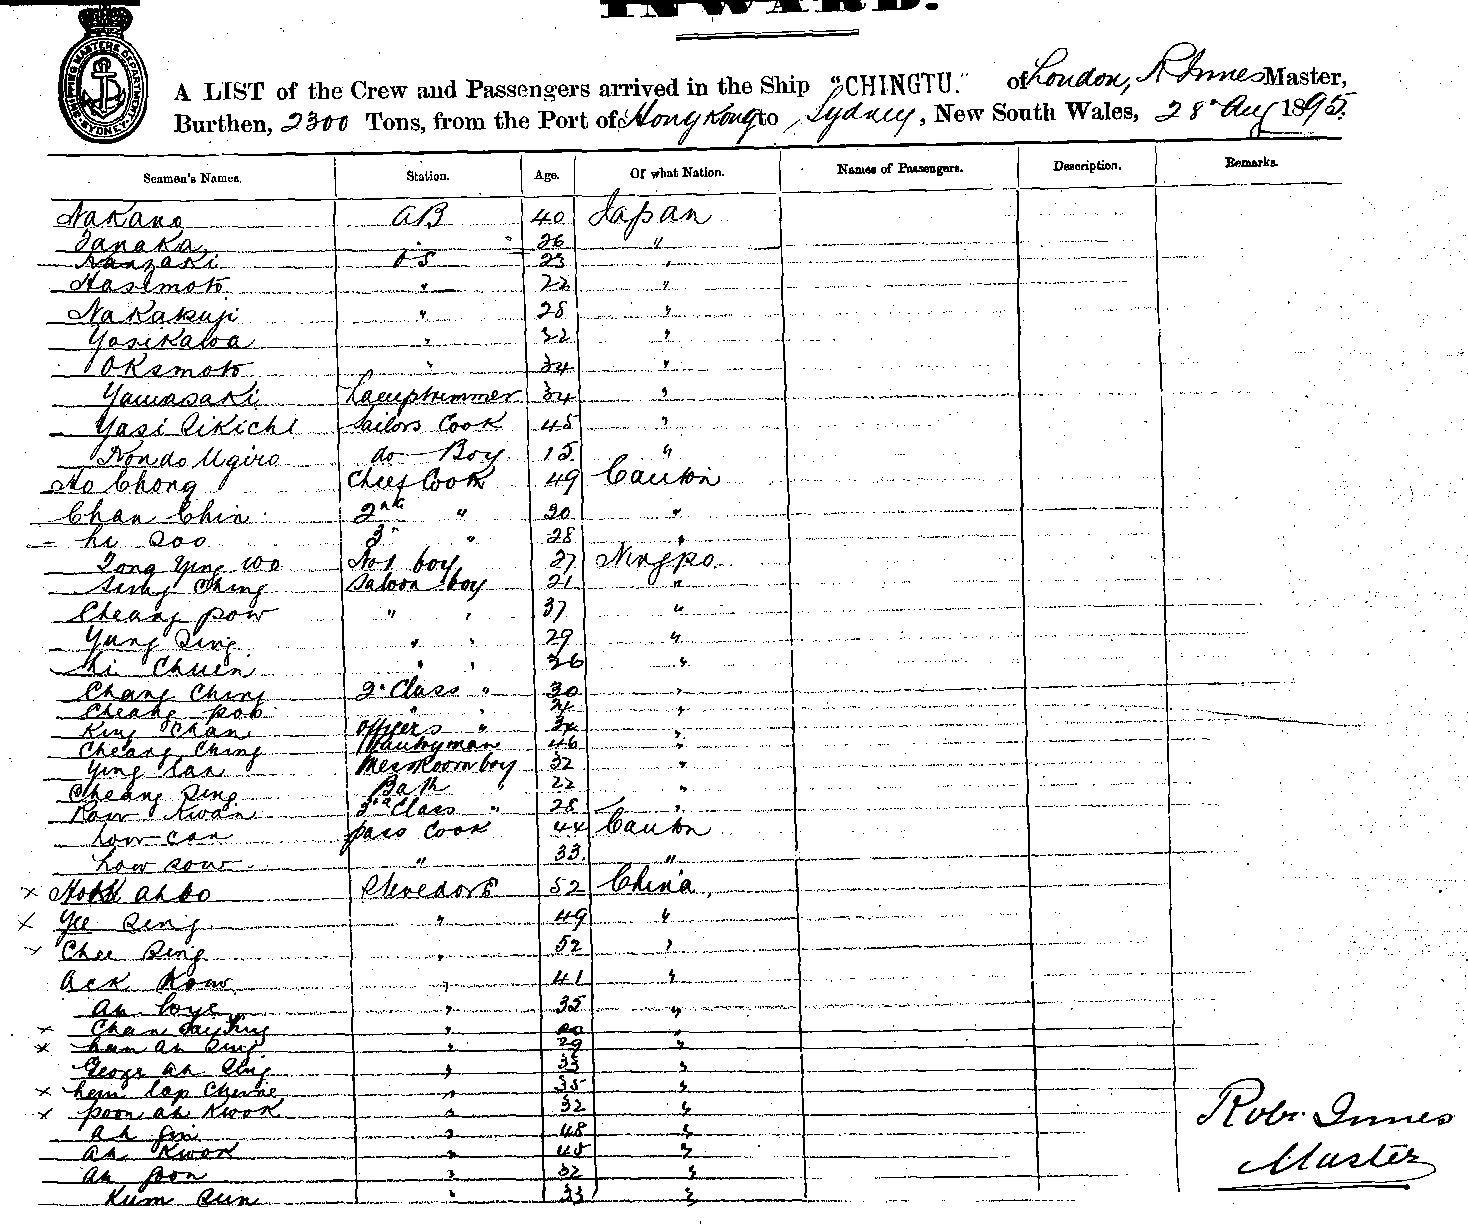 INWARD.
SHIPPING MASTERS DEPARTMENT SYDNEY
A LIST of the Crew and Passengers arrived in the Ship "CHINGTU." of London, R Innes Master,
Burthen, 2300 Tons, from the Port of Hong Kong to Sydney, New South Wales, 28 Aug 1895.
Seamen's Names. Station. Age. Of what Nation. Names of Passengers. Description. Remarks.
Nakano AB 40 Japan
Tanaka " 26 "
Kanzaki OS 23 "
Hasimoto " 22 "
Nakakuji " 28 "
Yosikawa " 32 "
Okamoto " 34 "
Yamasaki Lamptrimmer 34 "
Yasi Rikichi Sailors Cook 45 "
Kondo Ugiro do Boy 15 "
Ho Chong Chief Cook 49 Canton
Chan Chin 2nd " 30 "
Li Soo 3rd " 28 "
Tong Ying Woo No 1 boy 27 Ningpo
Sing Ching Saloon boy 21 "
Cheang pow " " 37 "
Yung Sing " " 29 "
Li Chuen " " 36 "
Chang Ching 2nd Class " 30 "
Cheang pob " " "
King Chan Officers " 34 "
Cheang Ching Pantryman 46 "
Ying Lan Messroom boy 32 "
Cheang Sing Bath " 22 "
Kow Kwan 3rd Class " 28 "
Low can pass Cook 44 Canton
Low sow " 33 "
x ah Stevedore 52 China
x Yee Seng " 49 "
x Chee Sing " 52 "
Ack Kow " 41 "
ah Loye " 35 "
x Chan " "
x ah Sing " 29 "
George ah Sing " 33 "
x lap " 35 "
x poon ah Kwok " 32 "
ah " 48 "
ah Kwok " 45 "
ah poon " 32 "
Kum Sun " 33 "
Robt Innes
Master